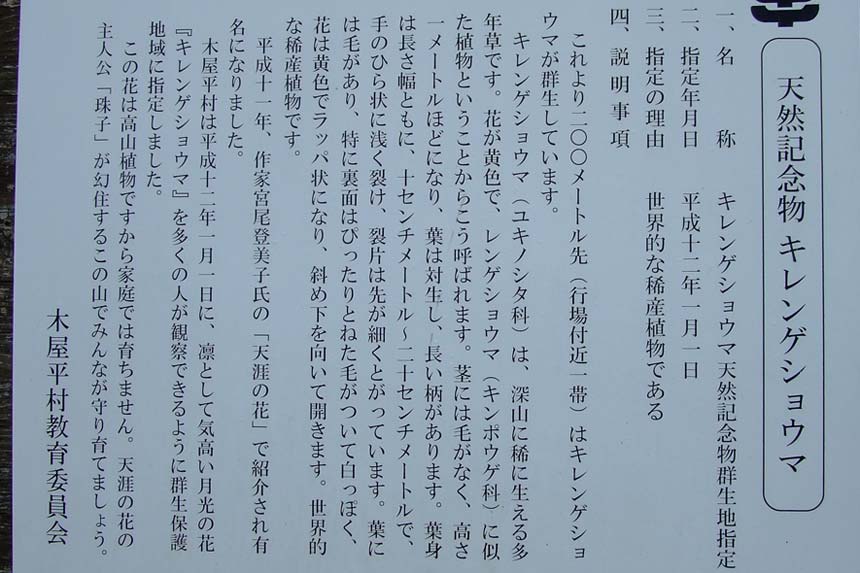 天然記念物 キレンゲショウマ
一、名　　称　　キレンゲショウマ天然記念物群生地指定
二、指定年月日　　平成十二年一月一日
三、指定の理由　　世界的な稀産植物である
四、説明事項
これより二〇〇メートル先（行場付近一帯）はキレンゲショ
ウマが群生しています。
キレンゲショウマ（ユキノシタ科）は、深山に稀に生える多
年草です。花が黄色で、レンゲショウマ（キンポウゲ科）に似
た植物ということからこう呼ばれます。茎には毛がなく、高さ
一メートルほどになり、葉は対生し、長い柄があります。葉身
は長さ幅ともに、十センチメートル～二十センチメートルで、
手のひら状に浅く裂け、裂片は先が細くとがっています。葉に
は毛があり、特に裏面はぴったりとねた毛がついて白っぽく、
花は黄色でラッパ状になり、斜め下を向いて開きます。世界的
な稀産植物です。
平成十一年、作家宮尾登美子氏の「天涯の花」で紹介され有
名になりました。
木屋平村は平成十二年一月一日に、凛として気高い月光の花
『キレンゲショウマ』を多くの人が観察できるように群生保護
地域に指定しました。
この花は高山植物ですから家庭では育ちません。天涯の花の
主人公「珠子」が幻住するこの山でみんなが守り育てましょう。
木屋平村教育委員会